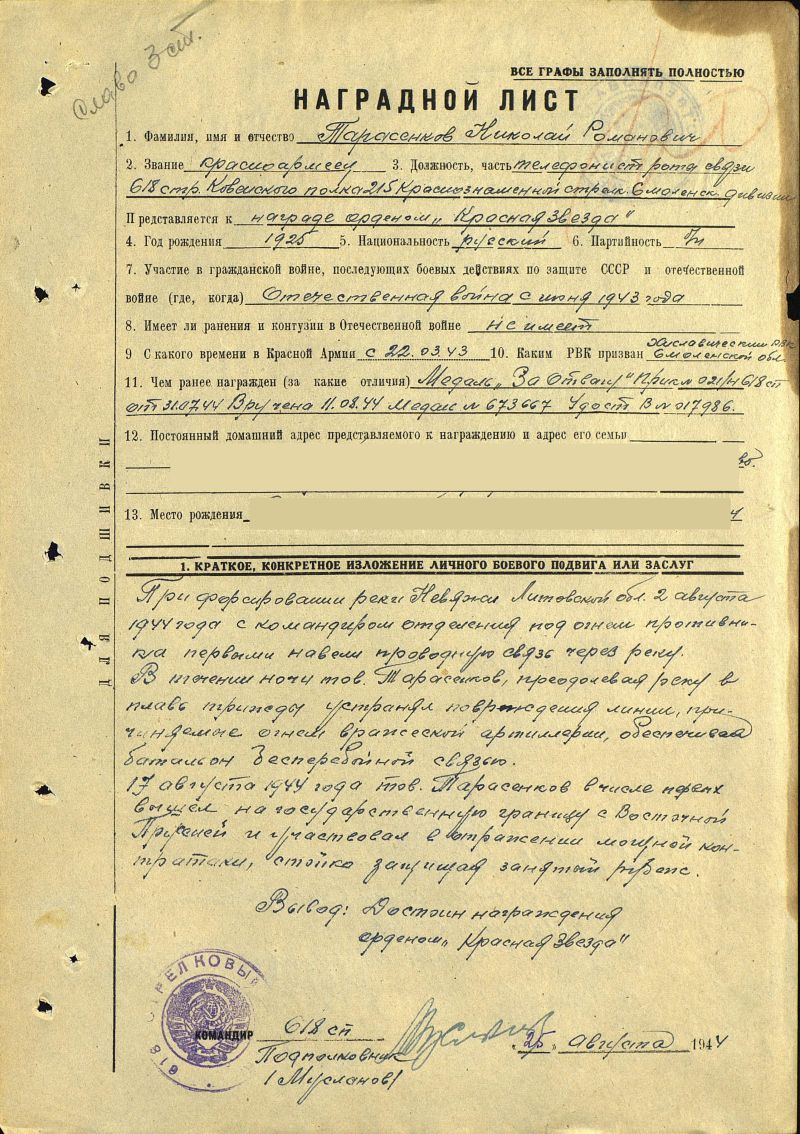 Слава 3 ст.
ВСЕ ГРАФЫ ЗАПОЛНЯТЬ ПОЛНОСТЬЮ
НАГРАДНОЙ ЛИСТ
1. Фамилия, имя и отчество Тарасенков Николай Романович
2. Звание красноармеец 3. Должность, часть телефонист рота связи
618 стр. Ковенского полка 215 Краснознаменной стрелк. Смоленск. дивизии
Представляется к награде орденом „Красная Звезда"
4. Год рождения 1925 5. Национальность русский 6. Партийность б/п
7. Участие в гражданской войне, последующих боевых действиях по защите СССР и отечественной
войне (где, когда) Отечественная война с июня 1943 года
8. Имеет ли ранения и контузии в Отечественной войне не имеет
9 С какого времени в Красной Армии с 22.03.43 10. Каким РВК призван Хиславическим РВК
Смоленской обл.
11. Чем ранее награжден (за какие отличия) Медаль „За Отвагу" Прик № 021/н 618 сп
от 31.07.44 Вручена 11.08.44 Медаль № 673667 Удост В № 017986.
12. Постоянный домашний адрес представляемого к награждению и адрес его семьи
13. Место рождения
ДЛЯ ПОДШИВКИ
1. КРАТКОЕ, КОНКРЕТНОЕ ИЗЛОЖЕНИЕ ЛИЧНОГО БОЕВОГО ПОДВИГА ИЛИ ЗАСЛУГ
При форсировании реки Невяжи Литовской обл. 2 августа
1944 года с командиром отделения под огнем противни-
ка первыми навели проводную связь через реку.
В течении ночи тов. Тарасенков, преодолевая реку в
плавь трижды устранял повреждения линии, при-
чиняемые огнем вражеской артиллерии, обеспечивая
батальон бесперебойной связью.
17 августа 1944 года тов. Тарасенков в числе первых
вышел на государственную границу с Восточной
Пруссией и участвовал в отражении мощной кон-
тратаки, стойко защищая занятый рубеж.
Вывод: Достоин награждения
орденом „Красная Звезда"
618 СТРЕЛКОВЫЙ
КОМАНДИР 618 сп
Подполковник
/Мусланов/
„25" августа 1944